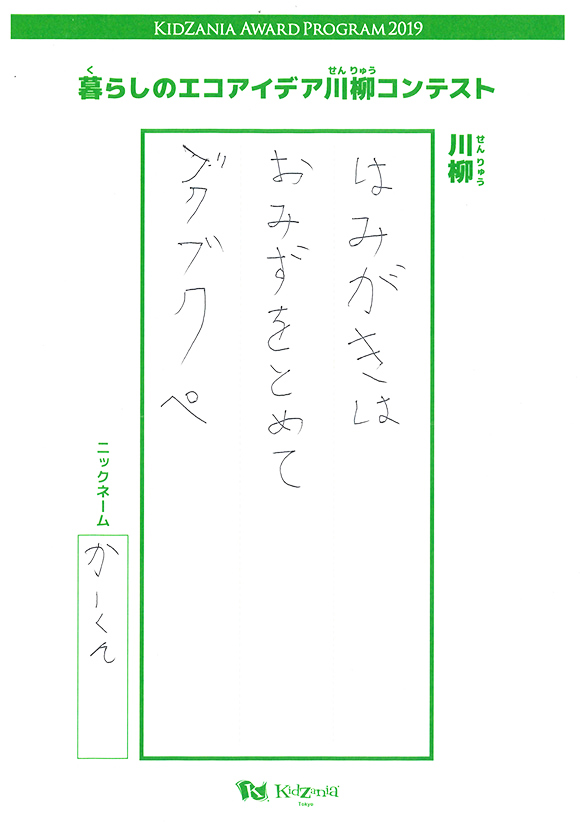 KIDZANIA AWARD PROGRAM 2019
暮らしのエコアイデア川柳コンテスト
く
せん りゅう
川柳
せん りゅう
はみがきは
おみずをとめて
ブクブクペ
ニックネーム
かーくん
KidZania
Tokyo